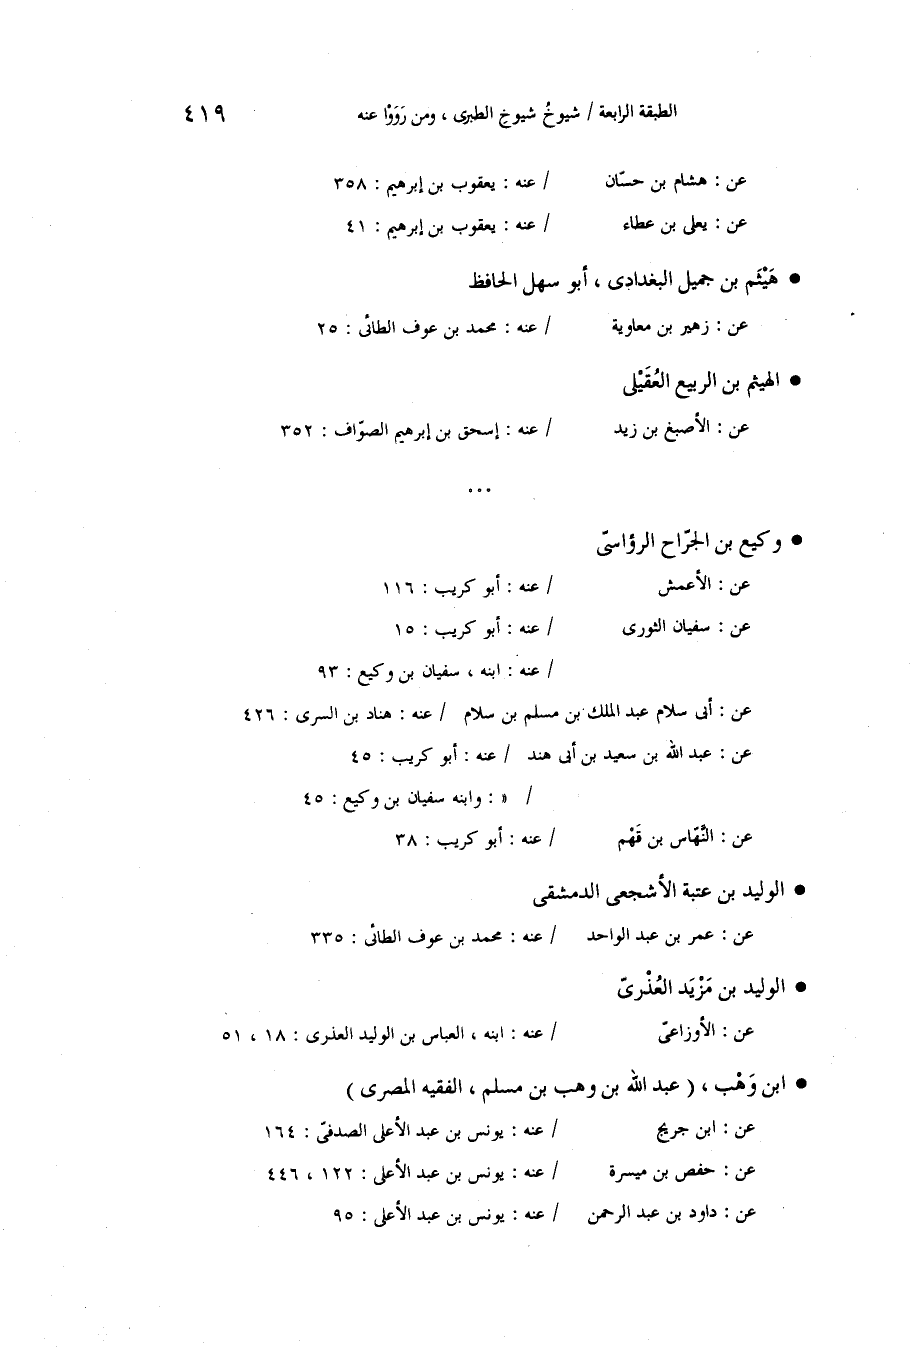 الطبقة الرابعة / شيوخُ شيوخِ الطبرى ، ومن رَوَوْا عنه ٤١٩
عن : هشام بن حسّان / عنه : يعقوب بن إبرهيم : ٣٥٨
عن : يعلى بن عطاء / عنه : يعقوب بن إبرهيم : ٤١
● هَيْثَم بن جميل البغدادى ، أبو سهل الحافظ
عن : زهير بن معاوية / عنه : محمد بن عوف الطائى : ٢٥
● الهيثم بن الربيع العُقَيْلى
عن : الأصبغ بن زيد / عنه : إسحق بن إبرهيم الصوّاف : ٣٥٢
...
● وكيع بن الجرّاح الرؤاسىّ
عن : الأعمش / عنه : أبو كريب : ١١٦
عن : سفيان الثورى / عنه : أبو كريب : ١٥
/ عنه : ابنه ، سفيان بن وكيع : ٩٣
عن : أبى سلام عبد الملك بن مسلم بن سلام / عنه : هناد بن السرى : ٤٢٦
عن : عبد الله بن سعيد بن أبى هند / عنه : أبو كريب : ٤٥
/ » : وابنه سفيان بن وكيع : ٤٥
عن : النَّهّاس بن قَهْم / عنه : أبو كريب : ٣٨
● الوليد بن عتبة الأشجعى الدمشقى
عن : عمر بن عبد الواحد / عنه : محمد بن عوف الطائى : ٣٣٥
● الوليد بن مَزْيَد العُذْرىّ
عن : الأوزاعىّ / عنه : ابنه ، العباس بن الوليد العذرى : ١٨ ، ٥١
● ابن وَهْب ، ( عبد الله بن وهب بن مسلم ، الفقيه المصرى )
عن : ابن جريج / عنه : يونس بن عبد الأعلى الصدفىّ : ١٦٤
عن : حفص بن ميسرة / عنه : يونس بن عبد الأعلى : ١٢٢ ، ٤٤٦
عن : داود بن عبد الرحمن / عنه : يونس بن عبد الأعلى : ٩٥